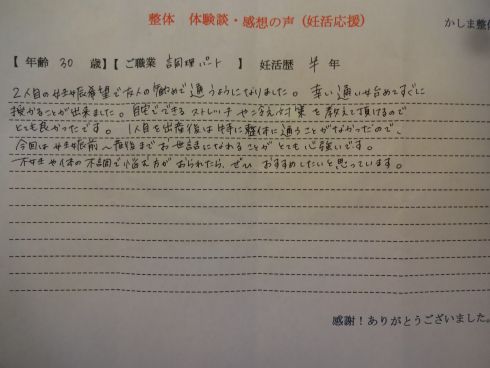 整体 体験談・感想の声(妊活応援)
かしま整体
【年齢 30 歳】【ご職業 調理パート 】 妊活歴 半年
2人目の妊娠希望で友人の勧めで通うようになりました。幸い通い始めてすぐに
授かることが出来ました。自宅でできるストレッチや冷え対策を教えて頂けるので
とても良かったです。1人目を出産後は特に整体に通うことがなかったので、
今回は妊娠前〜産後までお世話になれることがとても心強いです。
不妊や体の不調で悩え方がおられたら、ぜひおすすめしたいと思っています。
感謝!ありがとうございました。